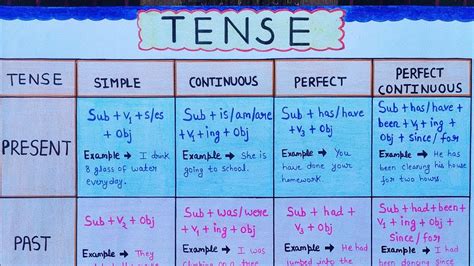 TENSE
TENSE SIMPLE CONTINUOUS PERFECT PERFECT
CONTINUOUS
PRESENT
Sub + V₁ + s/es
+ Obj
Example → I drink
8 glass of water
everyday.
Sub + is/am/are
+V₁ + ing + Obj
Example → She is
going to school.
Sub + has/have
+ V₃ + Obj
Example → You
have done your
homework
Sub + has/have +
been + V₁ + ing +
Obj + Since/for
Example → He has
been cleaning his house
for two hours.
PAST
Sub + V₂ + Obj
Example → They
Sub + was/were
+ V₁ + ing + Obj
Example → I was
climbing on a tree
Sub + had
+ V₃ + Obj
Example → He had
Sub + had + been +
V₁ + ing + Obj +
Since / for
Example → I had
been dancing since